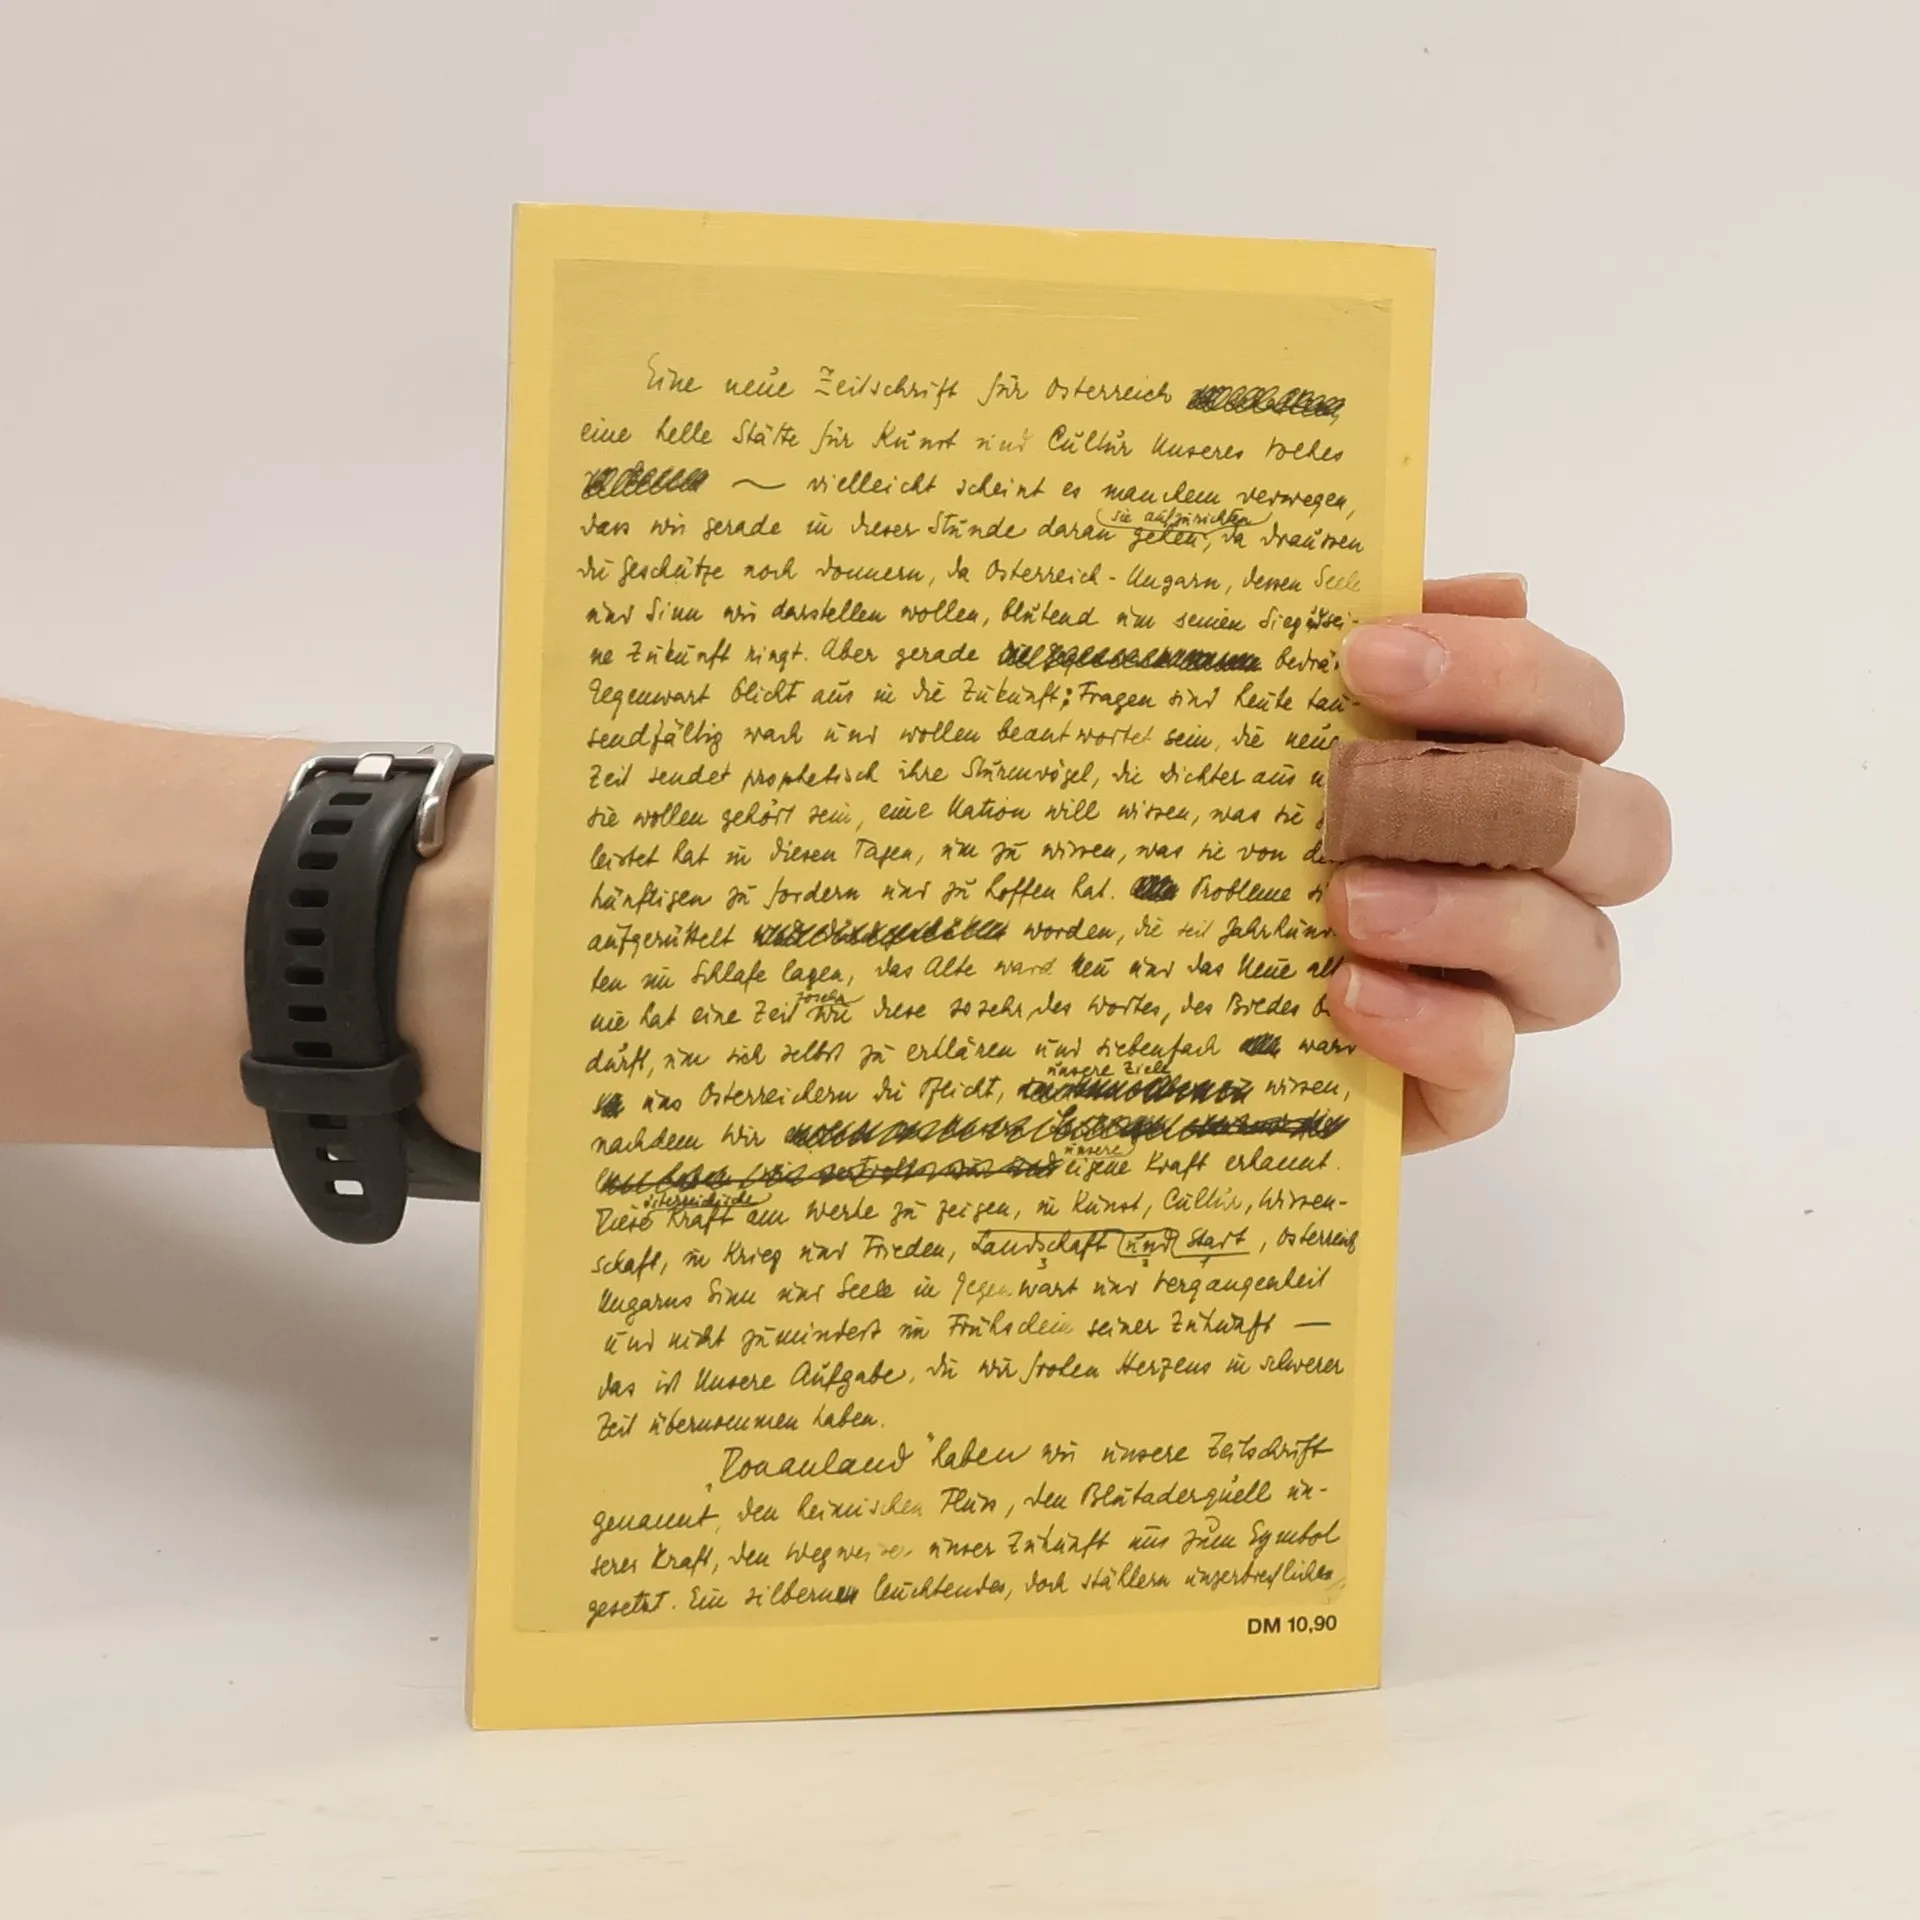 Eine neue Zeitschrift für Österreich
eine helle Stätte für Kunst und Cultur Unseres Volkes
— vielleicht scheint es manchem verwegen,
sie aufzurichten
dass wir gerade in dieser Stunde daran gehen, da draussen
die Geschütze noch donnern, da Österreich-Ungarn, dessen Seele
und Sinn wir darstellen wollen, blutend um seinen Sieg, sei-
ne Zukunft ringt. Aber gerade
Gegenwart blickt aus in die Zukunft; Fragen sind heute tau-
sendfältig wach und wollen beantwortet sein, die neue
Zeit sendet prophetisch ihre Sturmvögel, die Dichter aus
sie wollen gehört sein, eine Nation will wissen, was sie
leistet hat in diesen Tagen, um zu wissen, was sie von
künftigen zu fordern und zu hoffen hat. Probleme
aufgerüttelt worden, die seit Jahrhun
ten im Schlafe lagen, das Alte ward Neu und das Neue alt
nie hat eine Zeit diese so sehr des Wortes, des Bildes
dürft, um sich selbst zu erklären und siebenfach ward
uns Österreichern die Pflicht, wissen,
unsere Ziele
nachdem wir
unsere
eigene Kraft erkannt.
österreichische
Diese Kraft am Werke zu zeigen, in Kunst, Cultur, Wissen-
schaft, in Krieg und Frieden, Landschaft und Stadt, Österreich
3 2 1
Ungarns Sinn und Seele in Gegenwart und Vergangenheit
und nicht zumindest im Frühschein seiner Zukunft —
das ist Unsere Aufgabe, die wir frohen Herzens in schwerer
Zeit übernommen haben.
„Donauland" haben wir unsere Zeitschrift
genannt, den heimischen Fluss, den Blutaderquell un-
serer Kraft, den Wegweiser unser Zukunft uns zum Symbol
gesetzt. Ein silbernen leuchtendes, doch stählern unzerbrechliches
DM 10,90